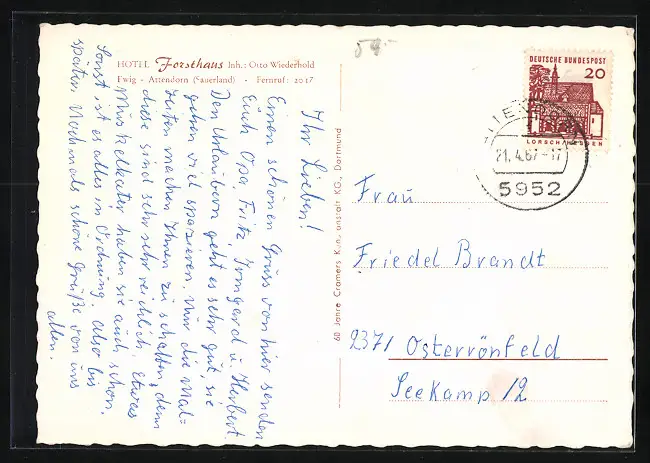 59.-
HOTEL Forsthaus Inh.: Otto Wiederhold
Ewig - Attendorn (Sauerland) - Fernruf: 2017
Ihr Lieben!
Einen schönen Gruss von hier senden
Euch Opa, Fritz, Irmgard u. Herbert
Den Urlaubern geht es sehr gut, sie
gehen viel spazieren. Nur die Mal=
zeiten machen Ihnen zu schaffen, denn
diese sind sehr sehr reichlich. Etwas
Muskelkater haben sie auch schon.
Sonst ist es alles in Ordnung. Also bis
später. Nochmals schöne Grüße von uns
allen.
60 Jahre Cramers Kunstanstalt KG., Dortmund
DEUTSCHE BUNDESPOST
20
LORSCH/HESSEN
21.4.67-17
5952
Frau
Friedel Brandt
2371 Osterrönfeld
Seekamp 12